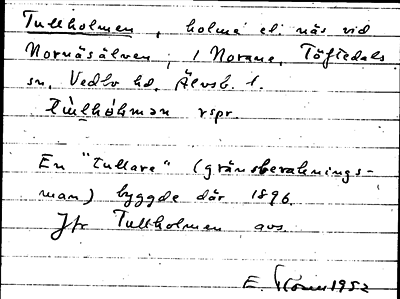 Tullholmen, holme el. näs vid
Nornäsälven, i Norane, Töftedals
sn, Vedbo hd, Älvsb. l.
rspr.
En "tullare" (gränsbevaknings-
man) byggde där 1896.
Jfr Tullholmen avs.
E. 1952